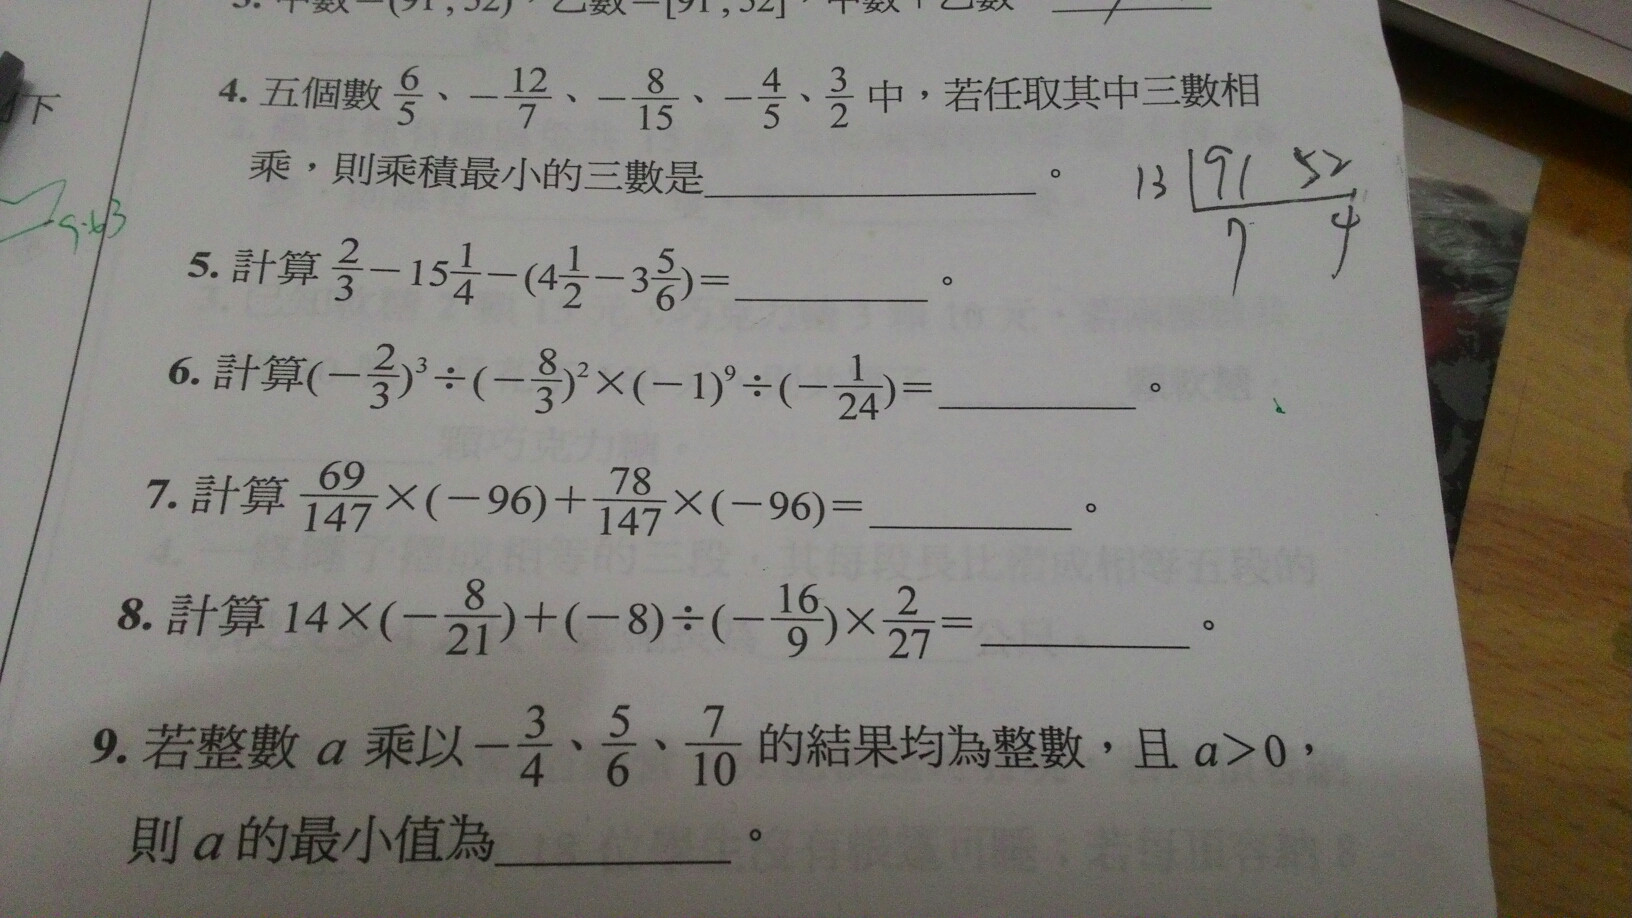 3. 甲數=(91 , 52)，乙數=[91 , 52]，甲數+乙數
下
4. 五個數 6/5、-12/7、-8/15、-4/5、3/2 中，若任取其中三數相
乘，則乘積最小的三數是____________。
13 91 52
7 4
5. 計算 2/3-15 1/4-(4 1/2-3 5/6)=________。
6. 計算(-2/3)³÷(-8/3)²×(-1)⁹÷(-1/24)=________。
7. 計算 69/147×(-96)+78/147×(-96)=________。
8. 計算 14×(-8/21)+(-8)÷(-16/9)×2/27=________。
9. 若整數 a 乘以-3/4、5/6、7/10 的結果均為整數，且 a>0，
則 a 的最小值為________。